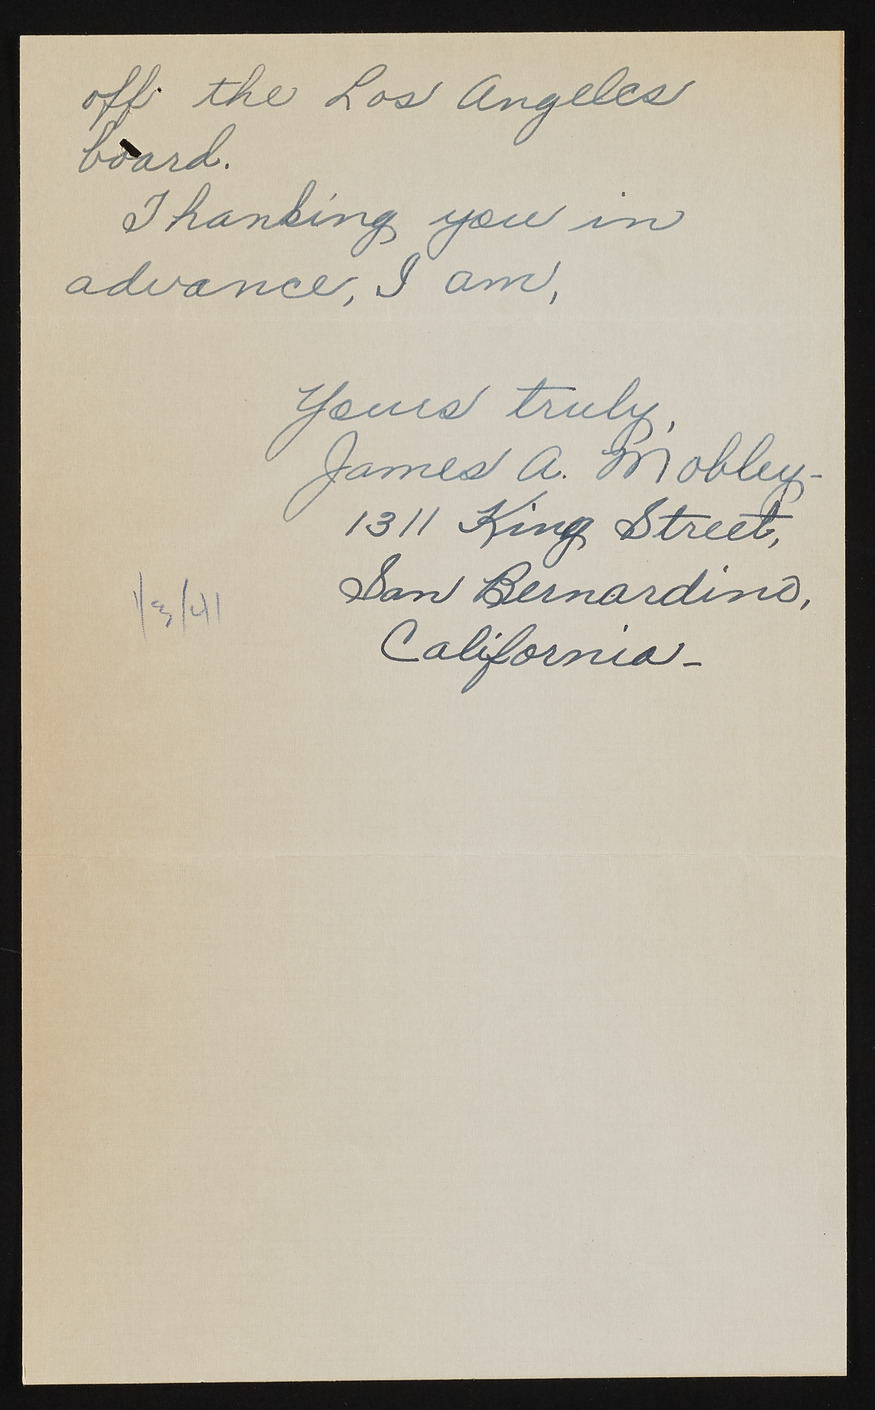 off the Los Angeles
board.
Thanking you in
advance, I am,
Yours truly,
James A. Mobley-
1311 King Street,
San Bernardino,
1/3/41
California-